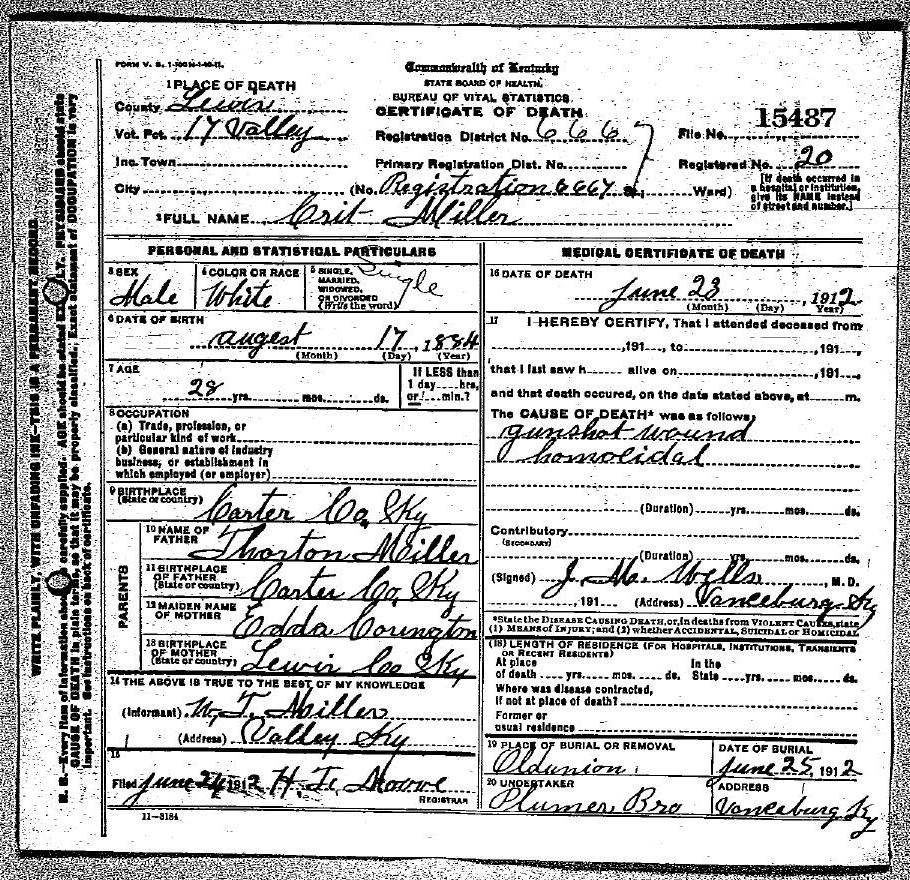 FORM V. S. 1-
Commonwealth of Kentucky
STATE BOARD OF HEALTH.
BUREAU OF VITAL STATISTICS.
CERTIFICATE OF DEATH.
1 PLACE OF DEATH
County Lewis
Vot. Pct. 17 Valley
Inc. Town
City
Registration District No. 6667
Primary Registration Dist. No.
(No. Registration 6667 St., Ward)
File No. 15487
Registered No. 20
[If death occurred in
a hospital or institution,
give its NAME instead
of street and number.]
2 FULL NAME Crit Miller
PERSONAL AND STATISTICAL PARTICULARS
3 SEX
Male
4 COLOR OR RACE
White
5 SINGLE,
MARRIED,
WIDOWED,
OR DIVORCED
(Write the word)
Single
6 DATE OF BIRTH
augest 17, 1884
(Month) (Day) (Year)
7 AGE
28 yrs. mos. ds.
If LESS than
1 day hrs.
or min.?
8 OCCUPATION
(a) Trade, profession, or
particular kind of work
(b) General nature of industry
business, or establishment in
which employed (or employer)
9 BIRTHPLACE
(State or country)
Carter Co. Ky
PARENTS
10 NAME OF
FATHER
Thorton Miller
11 BIRTHPLACE
OF FATHER
(State or country)
Carter Co. Ky
12 MAIDEN NAME
OF MOTHER
Edda Corington
13 BIRTHPLACE
OF MOTHER
(State or country)
Lewis Coo Ky
14 THE ABOVE IS TRUE TO THE BEST OF MY KNOWLEDGE
(Informant) W. T. Miller
(Address) Valley Ky
15
Filed June 24 1912 H. T. Moowe
REGISTRAR
11-3184
MEDICAL CERTIFICATE OF DEATH
16 DATE OF DEATH
June 23, 1912
(Month) (Day) (Year)
17 I HEREBY CERTIFY, That I attended deceased from
,191 , to ,191 ,
that I last saw h alive on ,191 ,
and that death occured, on the date stated above, at m.
The CAUSE OF DEATH* was as follows:
gunshot wound
homolidal
(Duration) yrs. mos. ds.
Contributory
(SECONDARY)
(Duration) yrs. mos. ds.
(Signed) J. M. Wells, M. D.
, 191 (Address) Vanceburg Ky
*State the DISEASE CAUSING DEATH, or, in deaths from VIOLENT CAUSES, state
(1) MEANS OF INJURY; and (2) whether ACCIDENTAL, SUICIDAL or HOMICIDAL
(18) LENGTH OF RESIDENCE (FOR HOSPITALS, INSTITUTIONS, TRANSIENTS
OR RECENT RESIDENTS)
At place In the
of death yrs. mos. ds. State yrs. mos. ds.
Where was disease contracted,
If not at place of death?
Former or
usual residence
19 PLACE OF BURIAL OR REMOVAL
Oldunion.
DATE OF BURIAL
June 25, 1912
20 UNDERTAKER
Plumer Bro
ADDRESS
Vanceburg Ky
WRITE PLAINLY, WITH UNFADING INK—THIS IS A PERMANENT RECORD.
N. B.—Every item of information should be carefully supplied. AGE should be stated EXACTLY. PHYSICIANS should state
CAUSE OF DEATH in plain terms, so that it may be properly classified. Exact statement of OCCUPATION is very
important. See instructions on back of certificate.